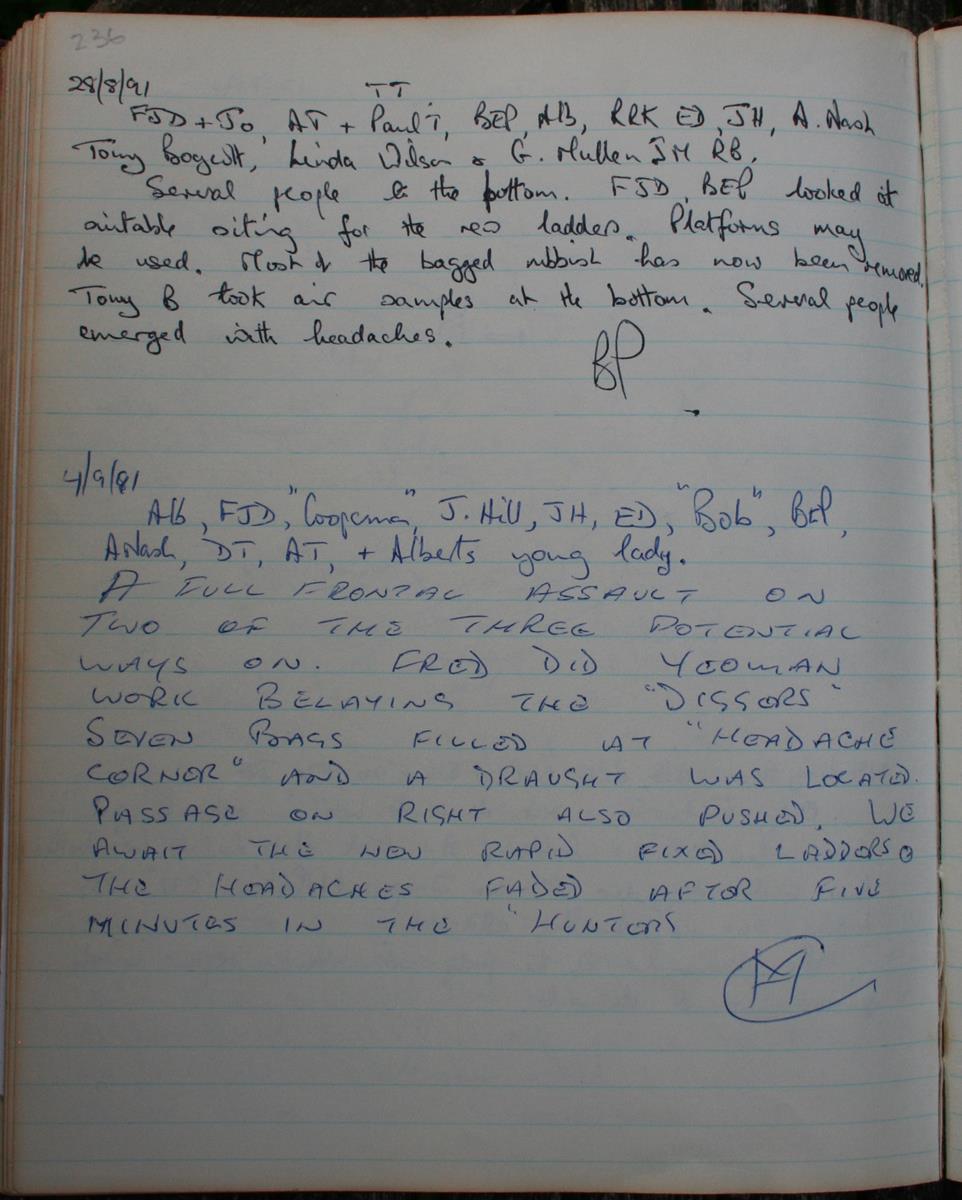 236
28/8/91
TT
FJD + Jo, AT + Paul T, BEP, Alb, RRK ED, JH, A. Nash
Tony Boycott, Linda Wilson & G. Mullen JM RB.
Several people to the bottom. FJD, BEP looked at
suitable siting for the new ladders. Platforms may
be used. Most of the bagged rubbish has now been removed.
Tony B took air samples at the bottom. Several people
emerged with headaches.
BP
4/9/91
Alb, FJD, "Coopeman", J. Hill, JH, ED, "Bob", BEP,
ANash, DT, AT, + Alberts young lady.
A FULL FRONTAL ASSAULT ON
TWO OF THE THREE POTENTIAL
WAYS ON. FRED DID YEOMAN
WORK BELAYING THE "DIGGERS"
SEVEN BAGS FILLED AT "HEADACHE
CORNER" AND A DRAUGHT WAS LOCATED.
PASSAGE ON RIGHT ALSO PUSHED. WE
AWAIT THE NEW RAPID FIXED LADDERS.
THE HEADACHES FADED AFTER FIVE
MINUTES IN THE "HUNTERS